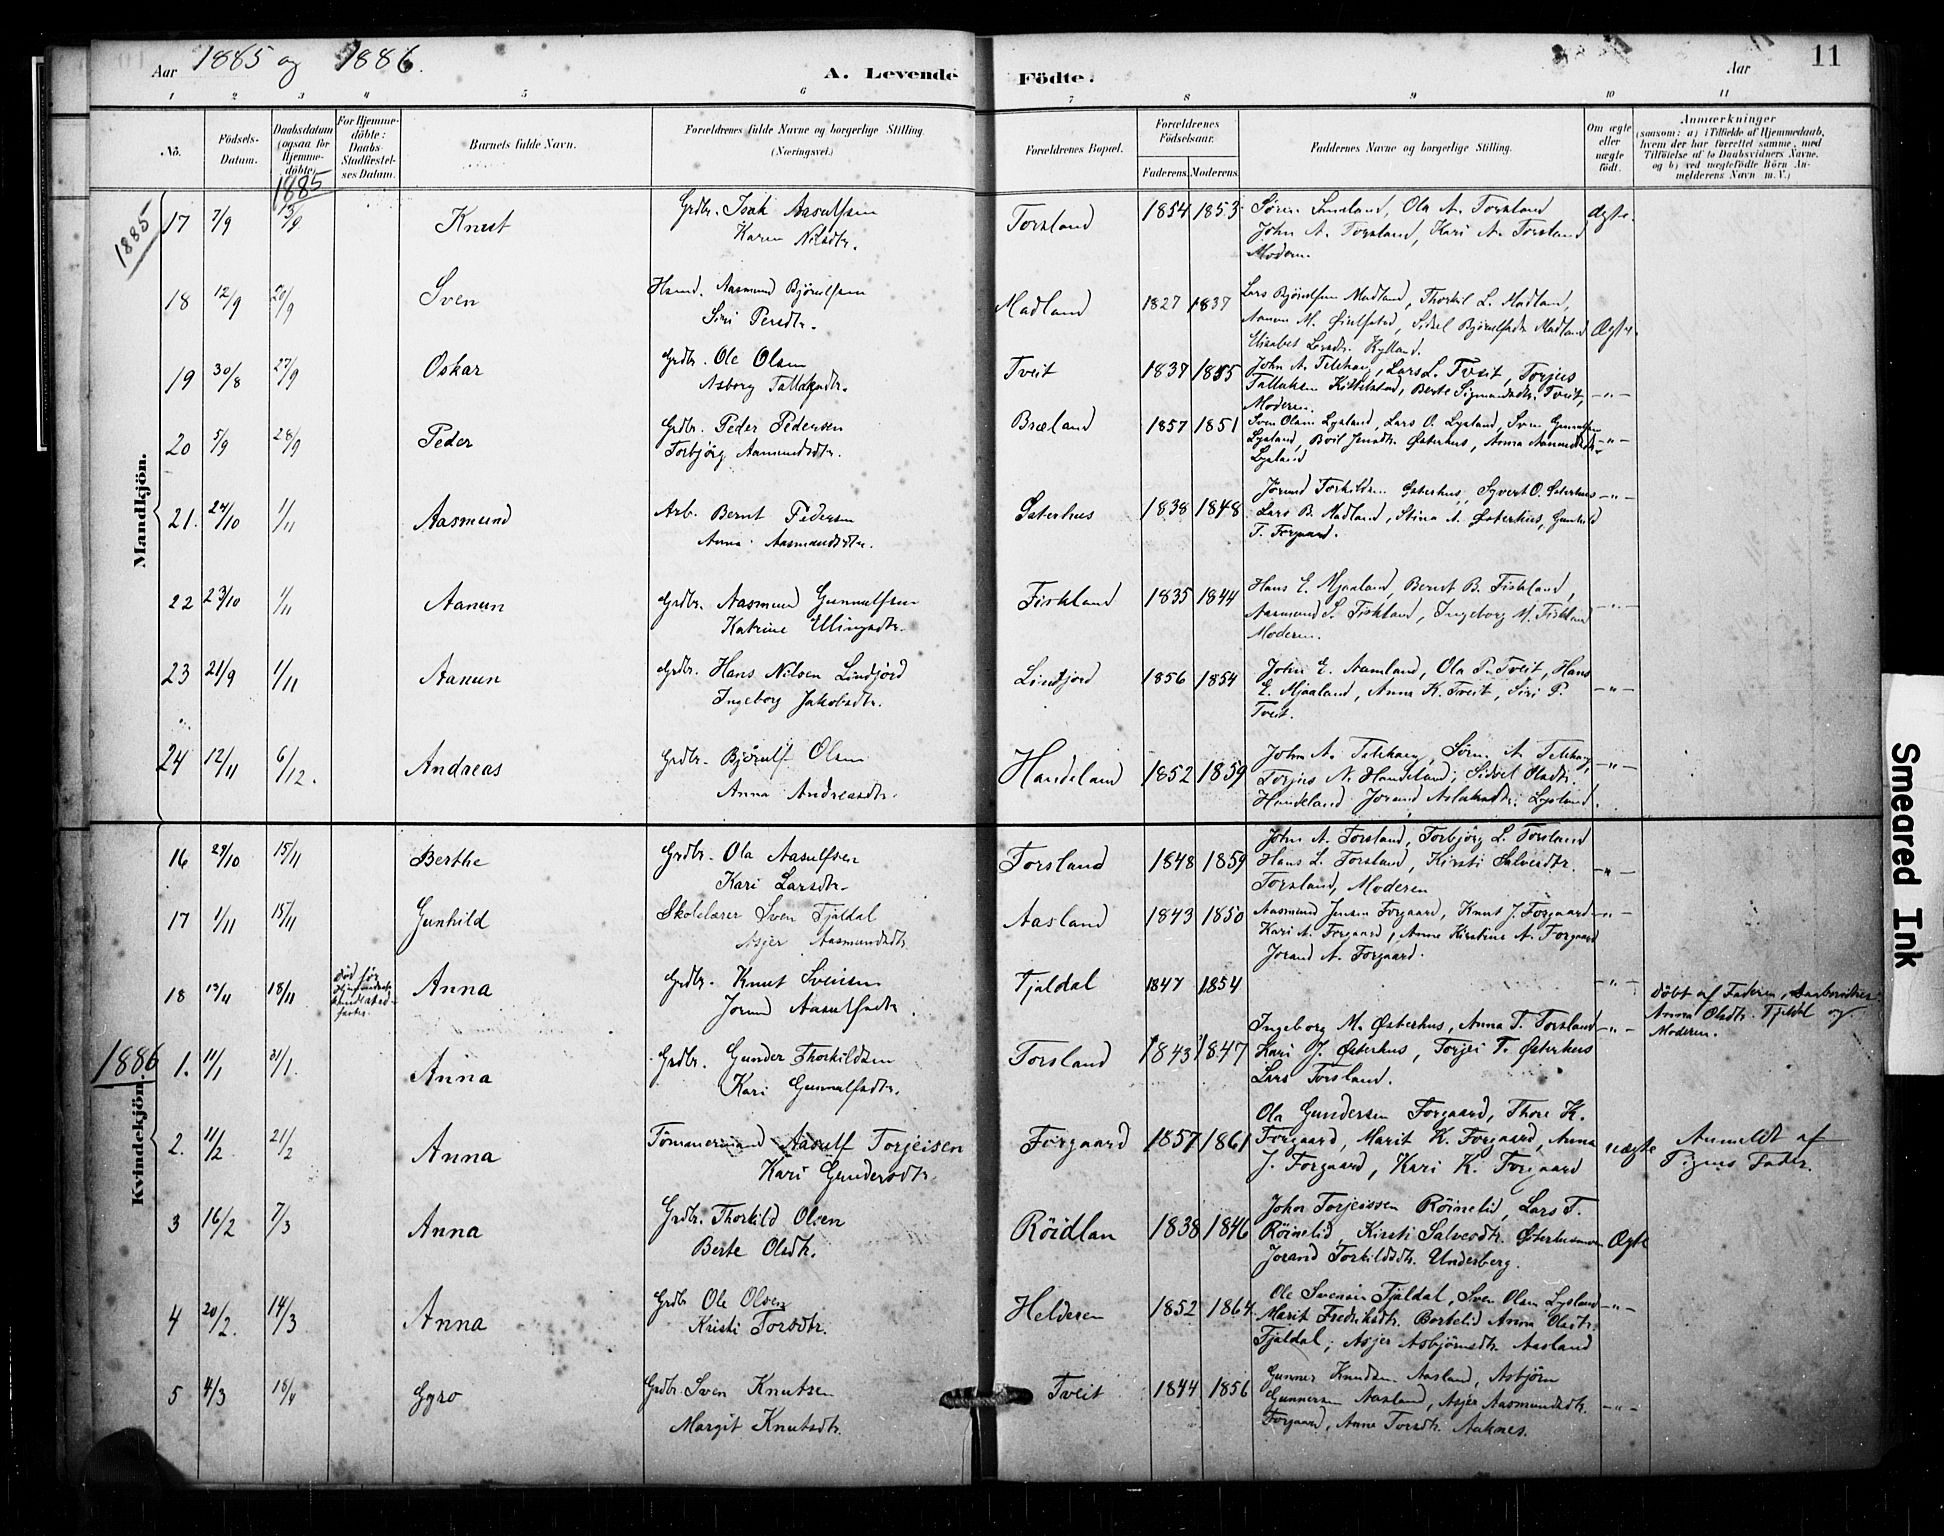 Aar 1885 og 1886.
A. Levende Födte.
Aar
11
1 2 3 4 5 6 7 8 9 10 11
No.
Födsels-Datum.
Daabsdatum (ogsaa for Hjemme-döbte)
For Hjemme-döbte: Daabs-Stadfæstel-ses Datum.
Barnets fulde Navn.
Forældrenes fulde Navne og borgerlige Stilling. (Næringsvei.)
Forældrenes Bopæl.
Forældrenes Födselsaar.
Faderens. Moderens.
Faddernes Navne og borgerlige Stilling.
Om ægte eller uægte födt.
Anmærkninger
(saasom: a) i Tilfælde af Hjemmedaab, hvem der har forrettet samme, med Tilföielse af to Daabsvidners Navne, og b) ved uægtefödte Börn An-melderens Navn m. V.)
1885
1885
Mandkjön.
17 7/9 13/9 Knut Grdbr. Isak Aasulfsen Torsland 1854 1853 Sören Ola A. Torsland Ægte
Karen Nilsdtr. John A. Torsland, Kari A. Torsland
Moderen.
18 12/9 20/9 Sven Aasmund Björulfsen Madland 1827 1837 Lars Björulfsen Madland, Thorkil L. Madland,
Siri Persdtr. Aanon M. Sidsel Björulfsdtr Madland Ægte
Elisabet Larsdtr. Kylland.
19 30/8 27/9 Oskar Grdbr. Ole Olsen Tveit 1837 1855 John A. Telehaug, Lars L. Tveit, Torjus
Asborg Tallaksdtr. Tallaksen Kittelstad, Berte Sigmundsdtr. Tveit, —„—
Moderen.
20 5/9 28/9 Peder Grdbr. Peder Pedersen Bræland 1857 1851 Sven Olsen Lysland, Lars O. Lysland, Sven Gunnufsen
Torbjörg Aanundsdtr. Lysland, Boil Jensdtr. Østerhus, Anna Aanundsdtr. —„—
Lysland
21. 24/10 1/11 Aasmund Arb. Bernt Pedersen Østerhus 1838 1848 Jörund Torkildsen Østerhus, Syvert O. Østerhus —„—
Anna Aasmundsdtr. Lars B. Madland, Stina A. Østerhus, Gunhild
T. Forgaard.
22 23/10 1/11 Aanun Grdbr. Aasmund Gunnulfsen Fiskland 1835 1844 Hans E. Mjaaland, Bernt B. Fiskland,
Katrine Ellingsdtr. Aasmund S. Fiskland, Ingeborg M. Fiskland —„—
Moderen.
23 21/9 1/11 Aanun Grdbr. Hans Nilsen Lindjord Lindjord 1856 1854 John E. Aamland, Ola P. Tveit, Hans
Ingeborg Jakobsdtr. E. Mjaaland, Anna K. Tveit, Siri P. —„—
Tveit.
24 12/11 6/12. Andreas Grdbr. Björulf Olsen Handeland 1852 1859 John A. Telehaug, Sören A. Telehaug, —„—
Anna Andreasdtr. Torjus N. Handeland, Sidsel Olsdtr.
Handeland Jorand Aslaksdtr. Lysland.
Kvindekjön.
16 29/10 15/11 Berthe Grdbr. Ola Aasulfsen Torsland 1848 1859 John A. Torsland, Torbjörg L. Torsland
Kari Larsdtr. Hans L. Torsland, Kirsti Salvesdtr. —„—
Torsland, Moderen
17 1/11 15/11 Gunhild Skolelærer Sven Tjaldal Aasland 1843 1850 Aasmund Jensen Forgaard, Knut J. Forgaard —„—
Asjer Aasmundsdtr. Kari A. Forgaard, Anne Kirstine A. Forgaard
Jorand A. Forgaard.
18 13/11 18/11 Död för Anna Grdbr. Knut Svensen Tjaldal 1847 1854 —„— Döbt af Faderen,
Jorund Aasulfsdtr. Anna Olsdtr. Tjeldal og
Moderen.
1886
1. 11/1 31/1. Anna Grdbr. Gunder Thorkildsen Torsland 1843 1847 Ingeborg M. Østerhus, Anna T. Torsland —„—
Kari Gunnulfsdtr. Kari J. Østerhus, Torjei T. Østerhus
Lars Torsland.
2. 11/2 21/2 Anna Tömmermand Aasulf Torjeisen Forgaard 1857 1861 Ola Gundersen Forgaard, Thore K.
Kari Gundersdtr. Forgaard, Marit K. Forgaard, Anna uægte Anmeldt af
J. Forgaard, Kari K. Forgaard Pigens Fader.
3 16/2 7/3 Anna Grdbr. Thorkild Olsen Röidlan 1838 1846 John Torjeissen Röinelid, Lars T.
Berte Olsdtr. Röinelid, Kirsti Salvesdtr. Østerhusmoen Ægte
Jorand Torkildsdtr. Underberg.
4 20/2. 14/3 Anna Grdbr Ole Olsen Heldesen 1852 1864 Ole Svensen Tjaldal, Sven Olsen Lysland —„—
Kristi Torsdtr. Marit Fredriksdtr. Bortelid Anna Olsdtr.
Tjaldal, Asjer Asbjörnsdtr. Aasland
5 4/3 18/4 Gyro Grdbr. Sven Knutsen Tveit 1844 1856 Gunner Knudsen Aasland, Asbjörn
Margit Knutsdtr. Gunnersen Aasland, Asjer Aasmundsdtr. —„—
Forgaard, Anne Torsdtr. Aaknes.
Smeared Ink